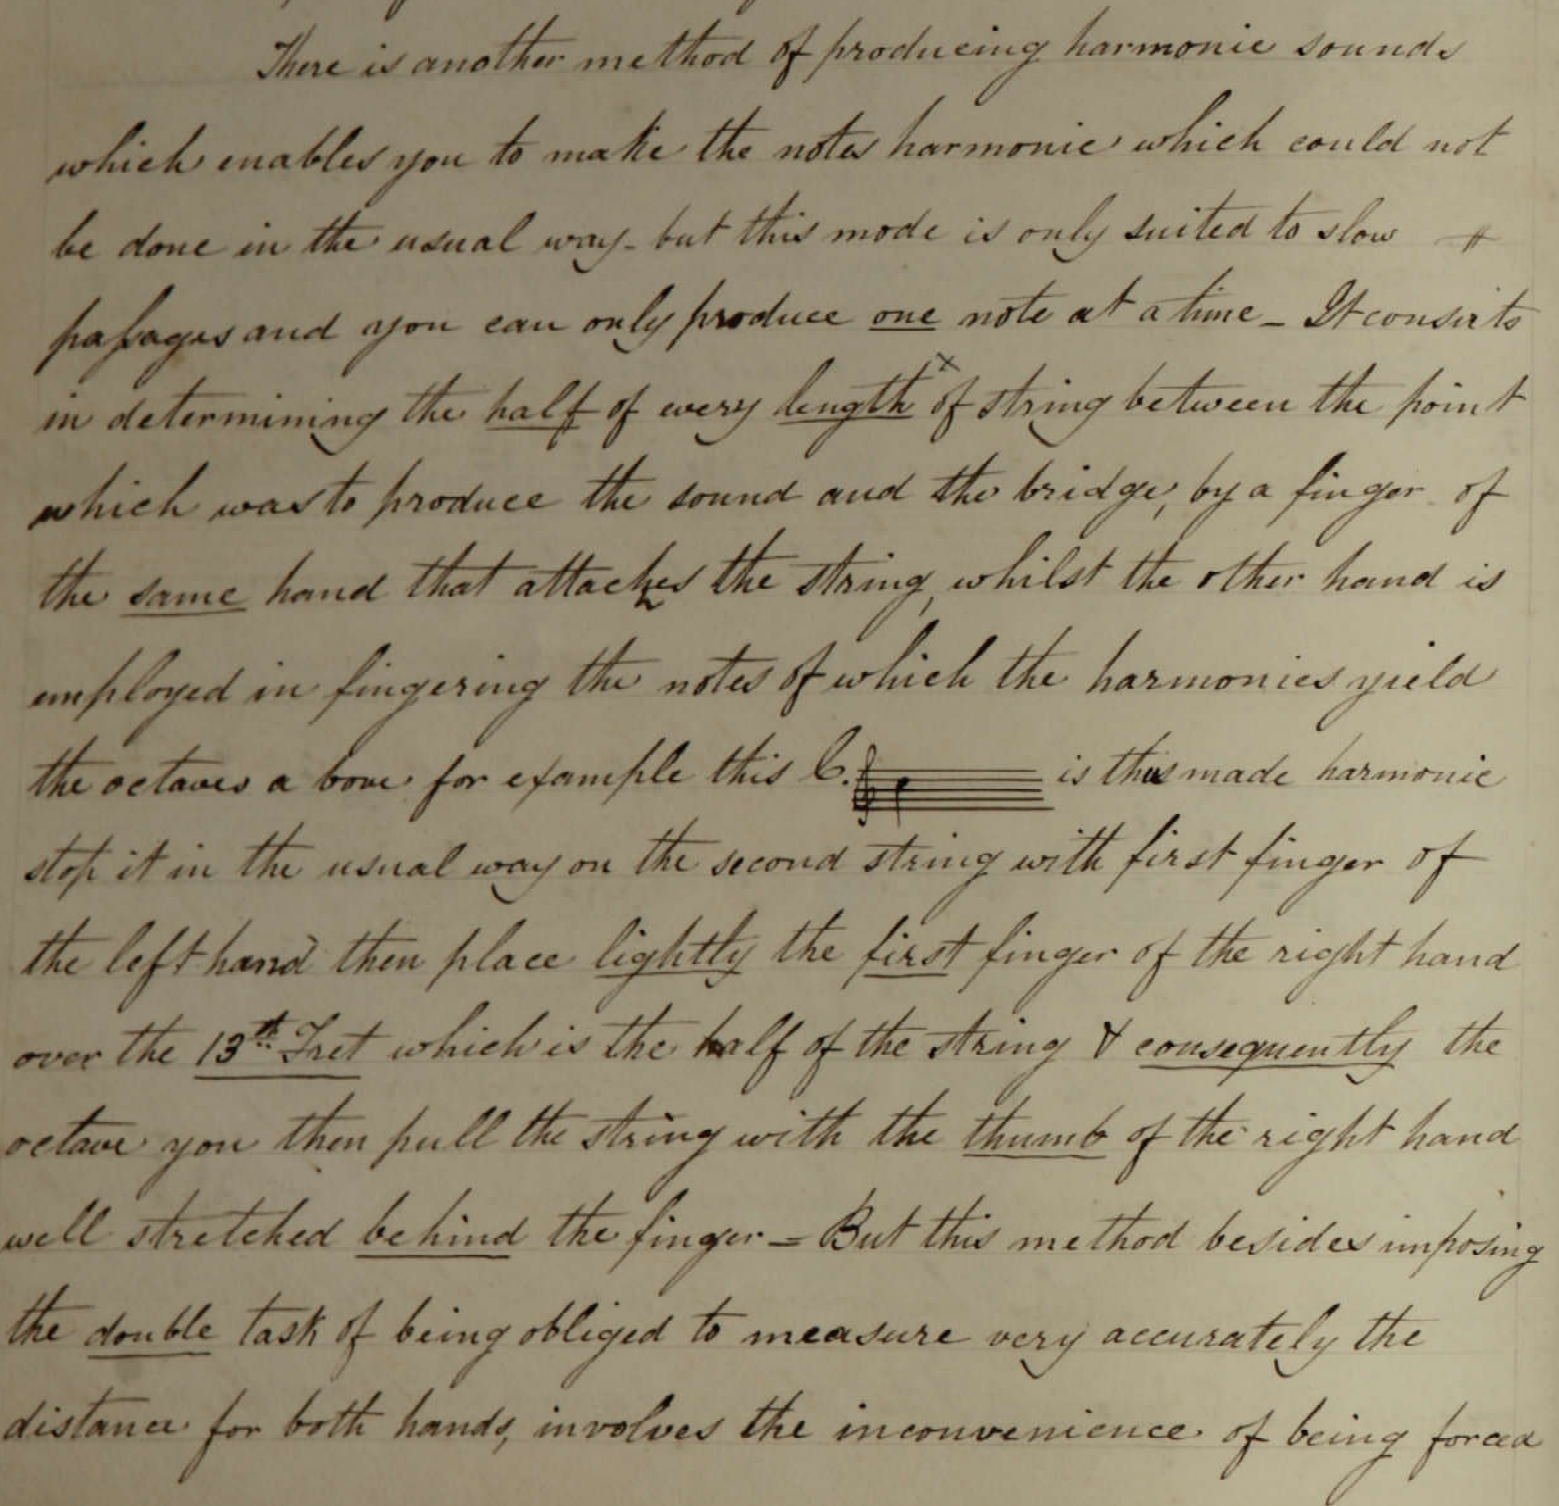 There is another method of producing harmonic sounds
which enables you to make the notes harmonic which could not
be done in the usual way - but this mode is only suited to slow #
paſsages and you can only produce one note at a time – It consists
in determining the half of every length x of string between the point
which was to produce the sound and the bridge, by a finger of
the same hand that attaches the string, whilst the other hand is
employed in fingering the notes of which the harmonics yield
the octaves a bove for example this C. is thus made harmonic
stop it in the usual way on the second string with first finger of
the left hand then place lightly the first finger of the right hand
over the 13th Fret which is the half of the string & consequently the
octave you then pull the string with the thumb of the right hand
well stretched behind the finger = But this method besides imposing
the double task of being obliged to measure very accurately the
distance for both hands, involves the inconvenience of being forced